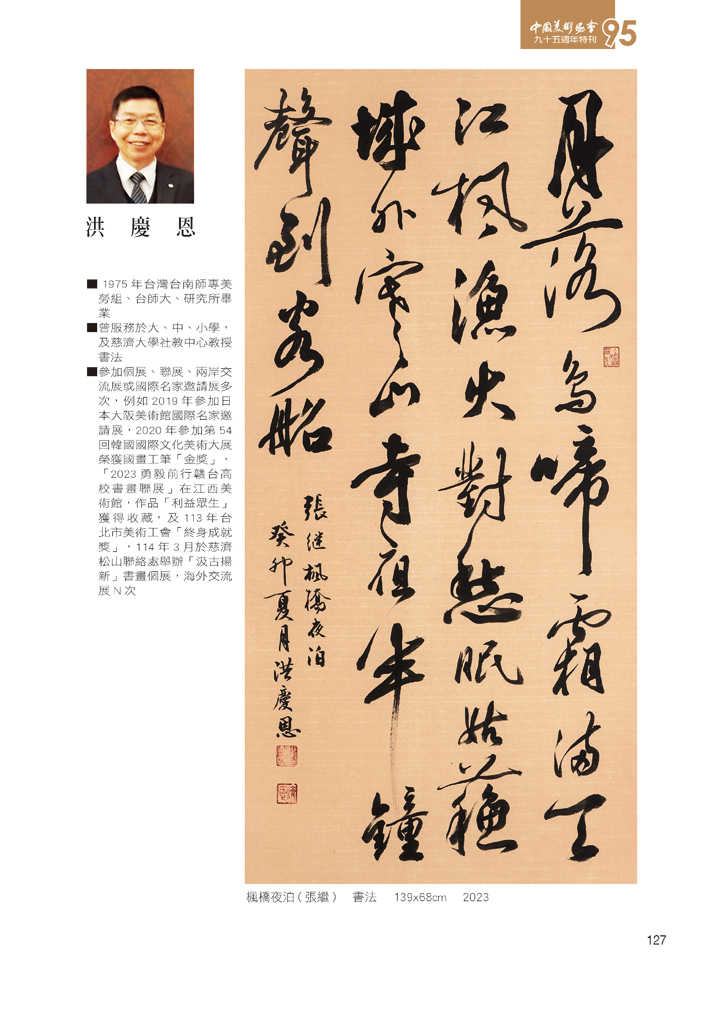 中國美術協會
九十五週年特刊
95
洪慶恩
■ 1975 年台灣台南師專美
勞組、台師大、研究所畢
業
■曾服務於大、中、小學，
及慈濟大學社教中心教授
書法
■參加個展、聯展、兩岸交
流展或國際名家邀請展多
次，例如 2019 年參加日
本大阪美術館國際名家邀
請展，2020 年參加第 54
回韓國國際文化美術大展
榮獲國畫工筆「金獎」，
「2023 勇毅前行贛台高
校書畫聯展」在江西美
術館，作品「利益眾生」
獲得收藏，及 113 年台
北市美術工會「終身成就
獎」，114 年 3 月於慈濟
松山聯絡處舉辦「汲古揚
新」書畫個展，海外交流
展 N 次
月落烏啼霜滿天
江楓漁火對愁眠姑蘇
城外寒山寺夜半鐘
聲到客船
張継楓橋夜泊
癸卯夏月洪慶恩
楓橋夜泊（張繼） 書法 139x68cm 2023
127